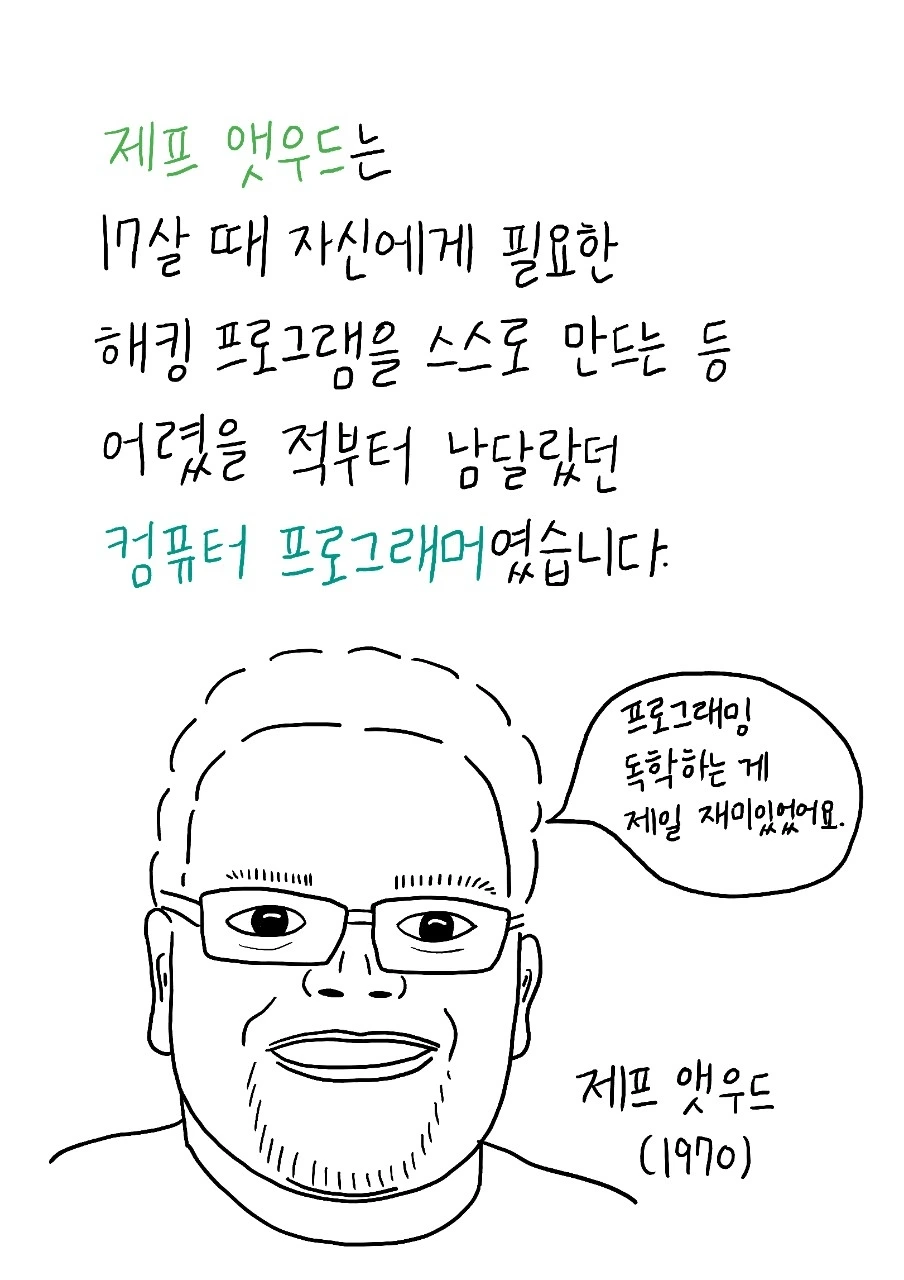 제프 앳우드는
17살 때 자신에게 필요한
해킹 프로그램을 스스로 만드는 등
어렸을 적부터 남달랐던
컴퓨터 프로그래머였습니다.
프로그래밍
독학하는 게
제일 재미있었어요.
제프 앳우드
(1970)